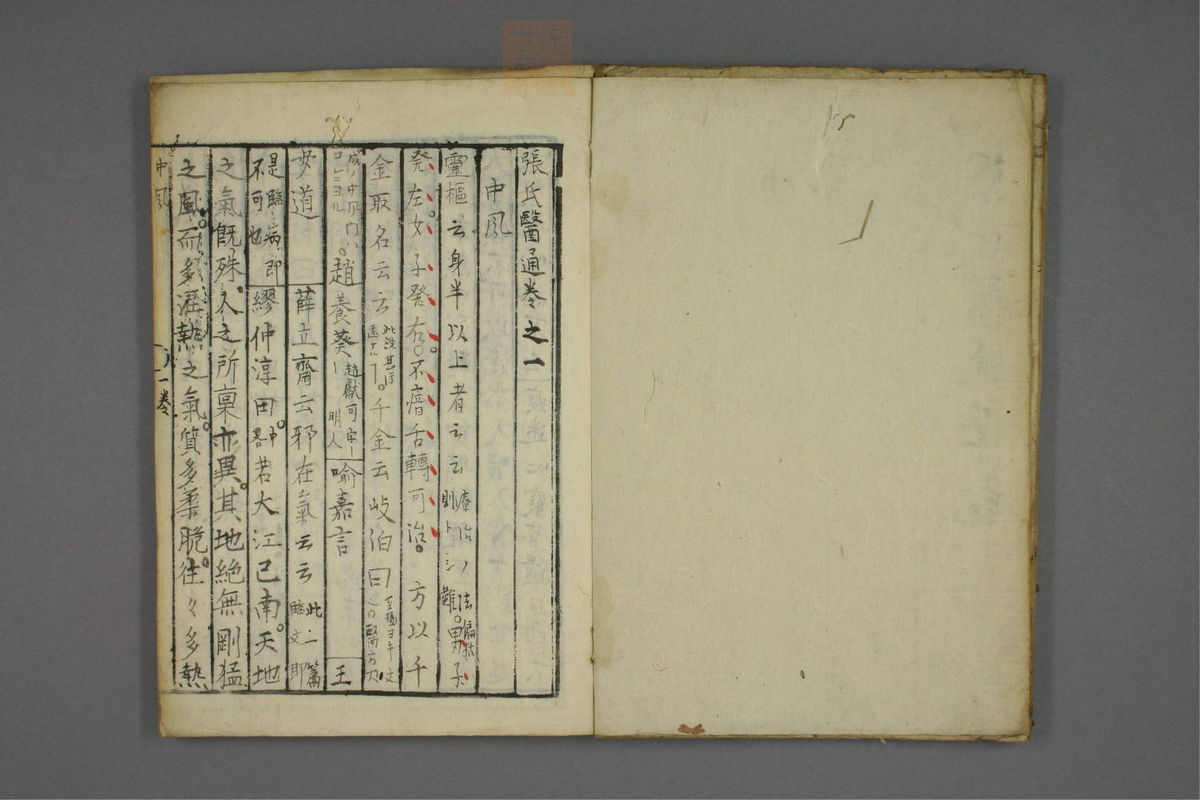 張氏醫通卷之一
中風
靈樞云身半以上者云云 法偏枯難。男子
發左女子發右。不瘖舌轉可治。 方以千
金取名云云 千金云岐伯曰
趙養葵 趙獻可字 明人 喻嘉言 王
安道 曰 薛立齋云邪在氣云云 此二篇
是臨病即不可也 繆仲淳曰。若大江已南。天地
之氣既殊。人之所稟亦異。其地絶無剛猛
之風。而多濕熱之氣。質多柔脆。往々多熱
中風
一卷